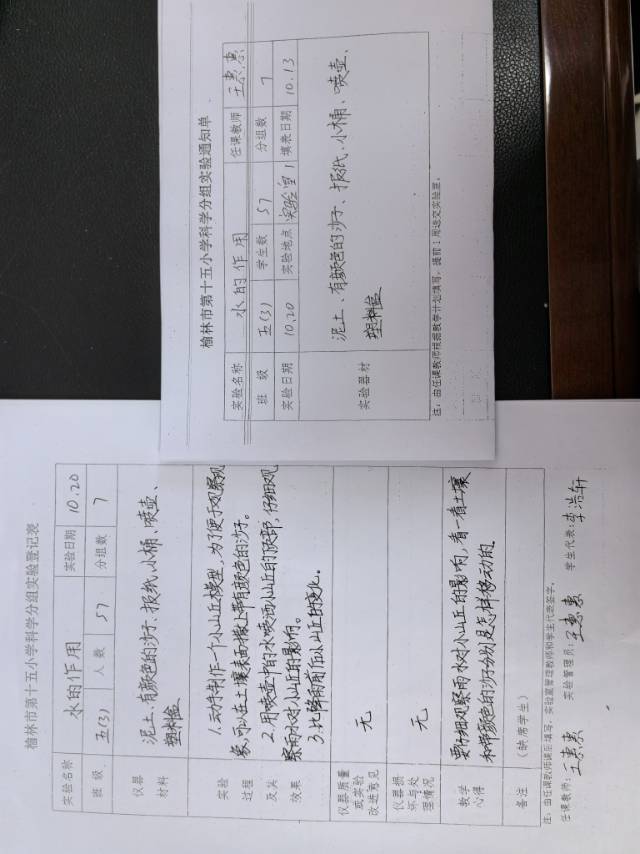 榆林市第十五小学科学分组实验通知单
实验名称 水的作用 任课教师 王惠惠
班 级 五(3) 学生数 57 分组数 7
实验日期 10.20 实验地点 实验室1 填表日期 10.13
实验器材 泥土、有颜色的沙子、报纸、小桶、喷壶、
塑料盒
注：由任课教师根据教学计划填写，提前1周送交实验室。
榆林市第十五小学科学分组实验登记表
实验名称 水的作用 实验日期 10.20
班 级 五(3) 人 数 57 分组数 7
仪器
材料
泥土、有颜色的沙子、报纸、小桶、喷壶、
塑料盒
实验
过程
及其
效果
1.动手制作一个小山丘模型，为了便于观察现
象，可以在土壤表面撒上带有颜色的沙子。
2.用喷壶中的水喷洒小山丘的顶部，仔细观
察雨水对小山丘的影响。
3.比较雨前后小山丘的变化。
仪器质量
或实验
改进意见
无
仪器损
坏与处
理情况
无
教学
心得
要仔细观察雨水对小山丘的影响，看一看土壤
和带颜色的沙子分别是怎样移动的。
备注 （缺席学生）
注：由任课教师课后填写，实验室管理教师和学生代表签字。
任课教师：王惠惠 实验管理员：王惠惠 学生代表：李浩轩